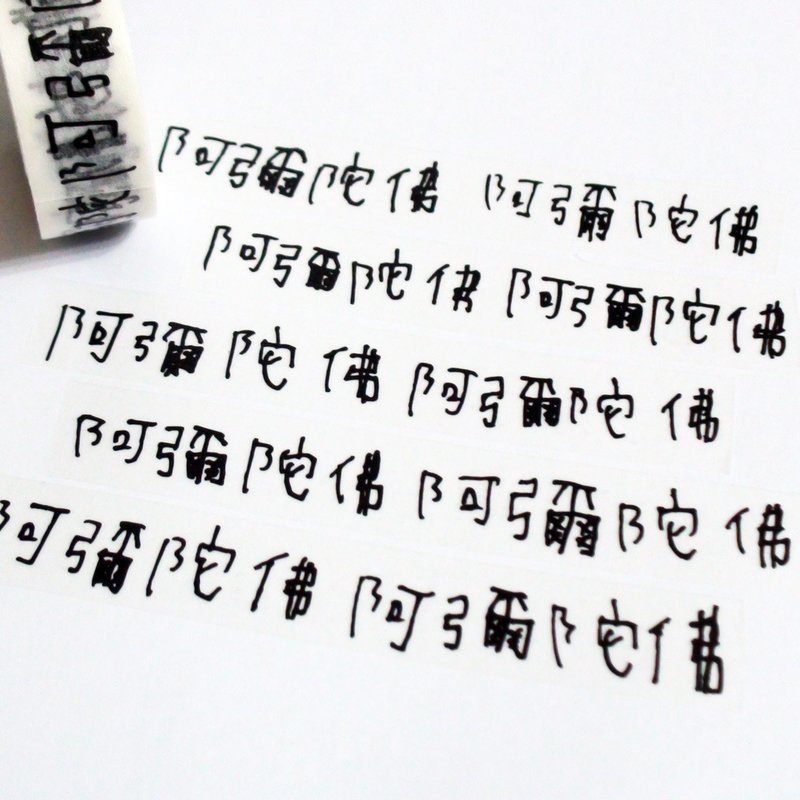 阿彌陀佛
阿彌陀佛 阿彌陀佛
阿彌陀佛 阿彌陀佛
阿彌陀佛 阿彌陀佛
阿彌陀佛 阿彌陀佛
阿彌陀佛 阿彌陀佛